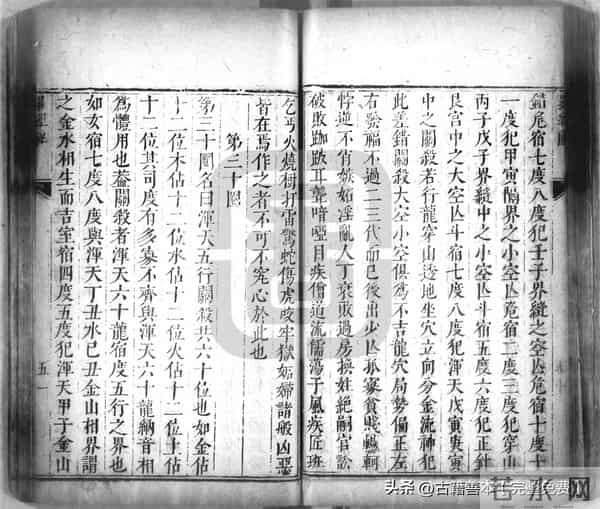 錯尾宿七度八度犯壬子界縫之空亾危宿七度十
一度犯甲寅陽界之小空亾危宿二度三度犯穿山
丙子戊子界縫中之小空亾斗宿五度六度犯正針
艮宮中之大空亾斗宿七度八度犯渾天戊寅庚寅
中之關殺若行龍穿山透地坐穴立向分金流神犯
此差錯關殺大空小空俱爲不吉龍穴局勢偏正左
右發福不過二三代而已後出少亾孤寡貧賤
悖逆不肖嫉妬淫亂人丁衰敗過房換姓絶嗣官訟
破敗跏跛耳聾喑啞目疾僧道流儒蕩子風疾匠班
乞丐火燒樹打雷驚蛇傷虎咬牢獄妬婦諸般凶惡
皆在焉作之者不可不究心於此也
第三十圖
第三十圖名曰渾天五行關殺共六十位也如金佔
十二位木佔十二位水佔十二位火佔十二位土佔
十二位其司度有多寡不齊與渾天六十龍納音相
爲體用也葢關殺者渾天六十龍宿度五行之界也
如女宿七度八度與渾天丁丑水巳丑金山相界謂
之金水相生而吉室宿四度五度犯渾天甲子金山
五一
头条 @古籍善本